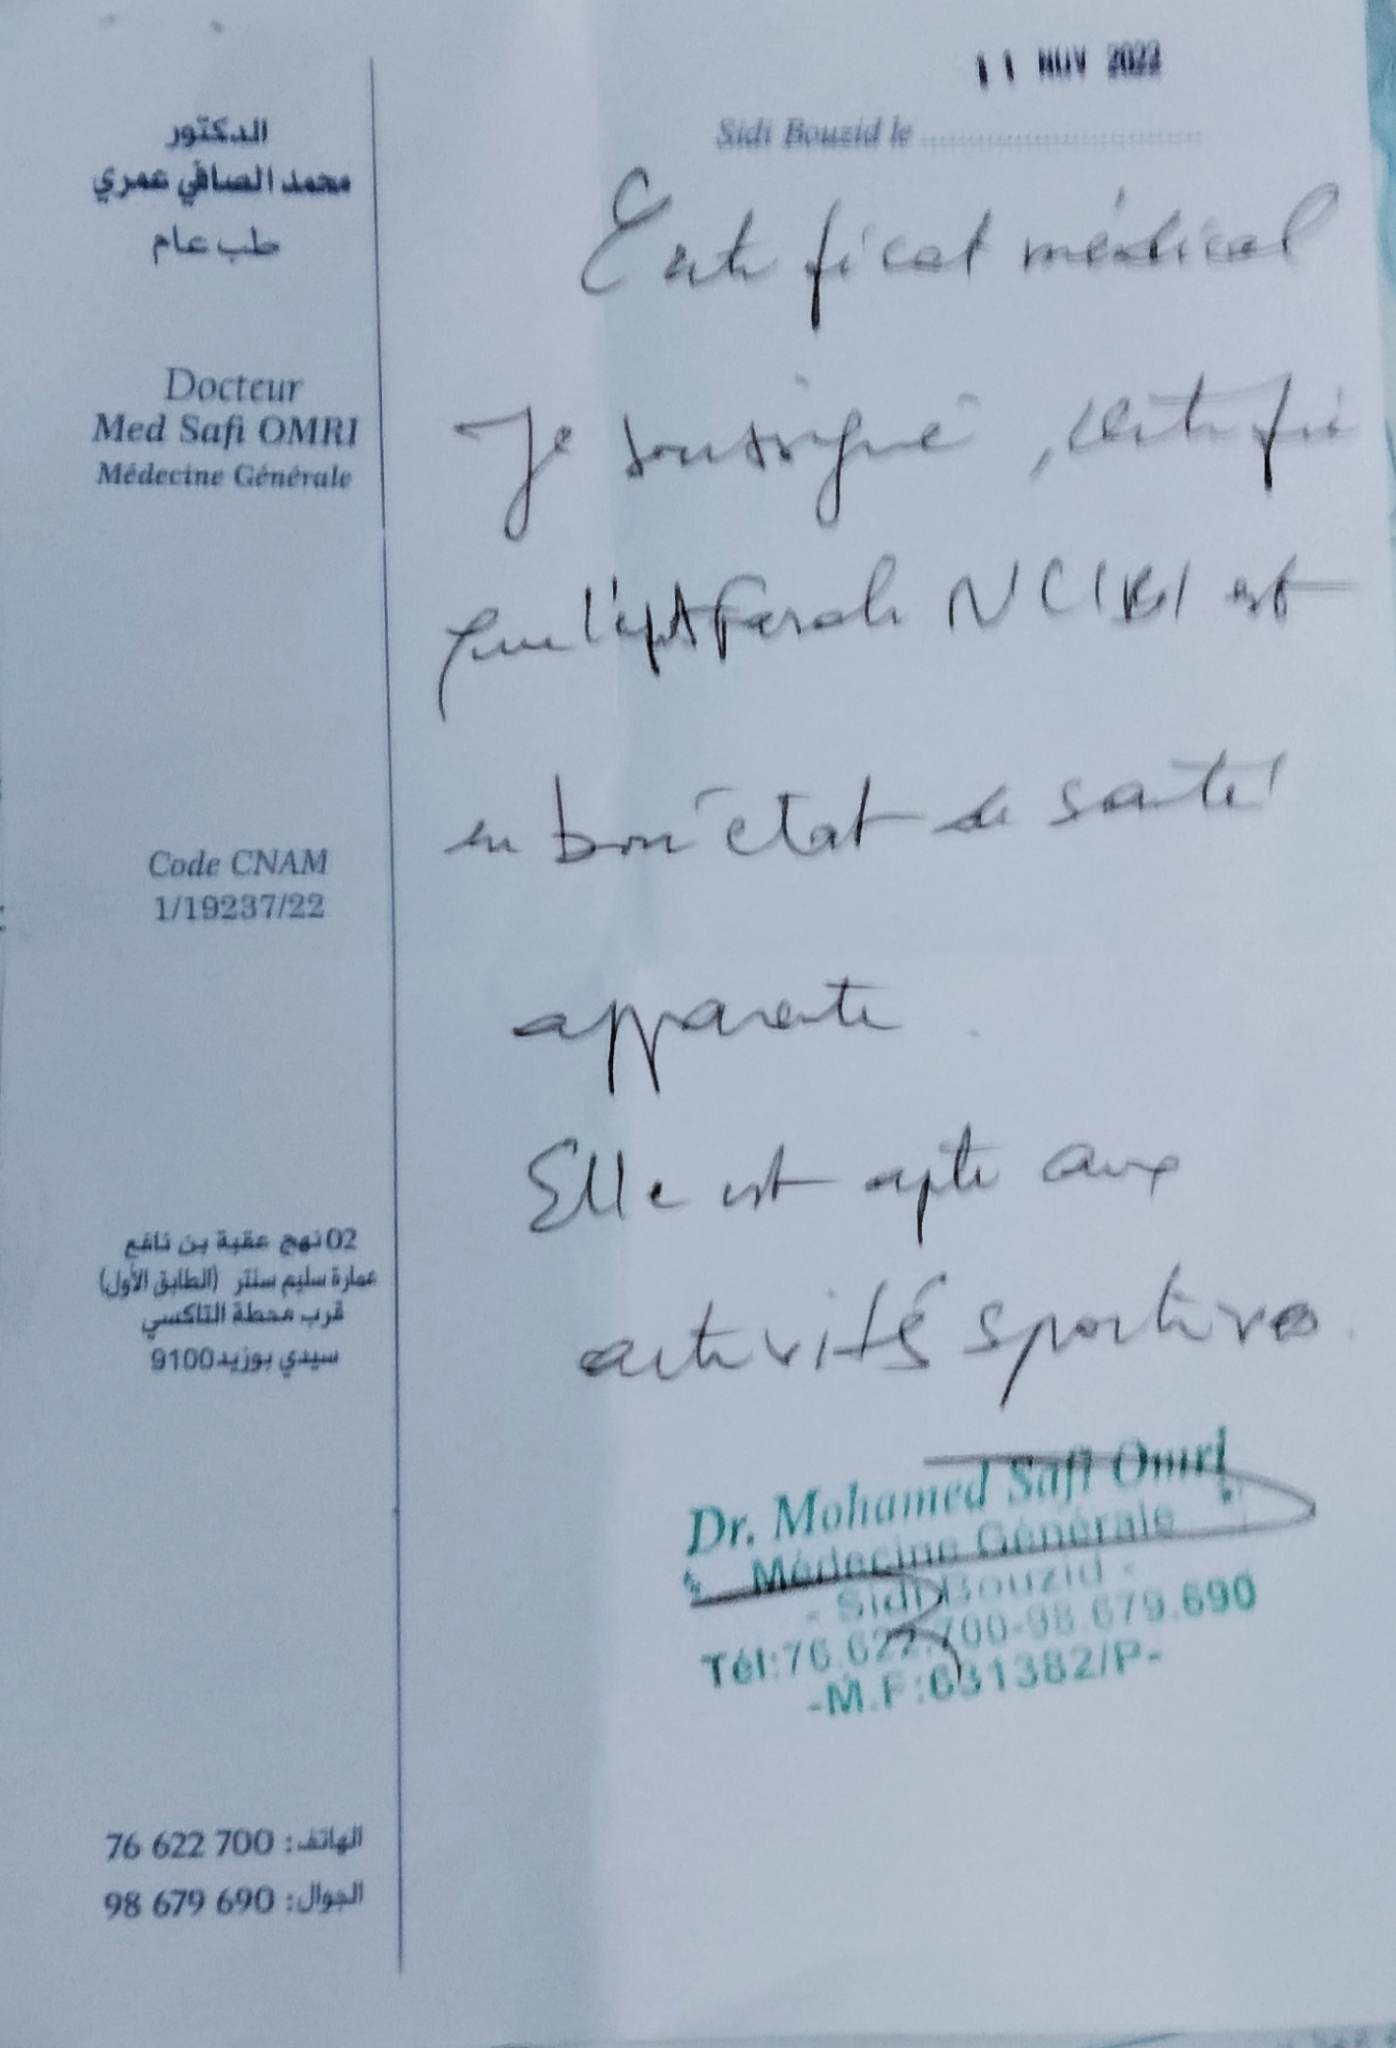 11 NOV 2022
Sidi Bouzid le
الدكتور
محمد الصافي عمري
طب عام
Docteur
Med Safi OMRI
Médecine Générale
Code CNAM
1/19237/22
02 نهج عقبة بن نافع
عمارة سليم سنتر (الطابق الأول)
قرب محطة التاكسي
سيدي بوزيد 9100
الهاتف: 76 622 700
الجوال: 98 679 690
Certificat médical
Je soussigné, certifie
que Farah NCIBI est
en bon état de santé
apparente.
Elle est apte aux
activités sportives.
Dr. Mohamed Safi Omri
Médecine Générale
- Sidi Bouzid -
Tél:76.622.700-98.679.690
-M.F:631382/P-